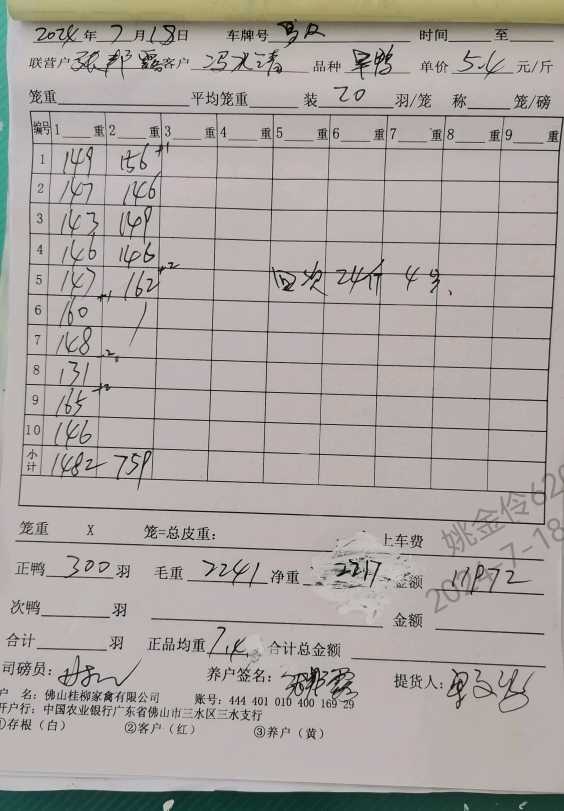 2024年7月18日 车牌号 时间 至
联营户 张邦露 客户 冯水清 品种 旱鸭 单价 5.4 元/斤
笼重 平均笼重 装 20 羽/笼 称 笼/磅
编号 1 重 2 重 3 重 4 重 5 重 6 重 7 重 8 重 9 重
1 149 156 +1
2 147 146
3 143 149
4 146 146
5 147 162 +2 回次 24斤 4只、
6 160 +1
7 148
8 131 -2
9 165 +2
10 146
小计 1482 759
笼重 X 笼=总皮重: 上车费
正鸭 300 羽 毛重 2241 净重 2217 金额 11972
次鸭 羽 金额
合计 羽 正品均重 7.4 合计总金额
司磅员: 养户签名: 张邦露 提货人:
户 名: 佛山桂柳家禽有限公司 账号: 444 401 010 400 169 29
开户行: 中国农业银行广东省佛山市三水区三水支行
①存根(白) ②客户(红) ③养户(黄)
姚金伶620
2024-7-18